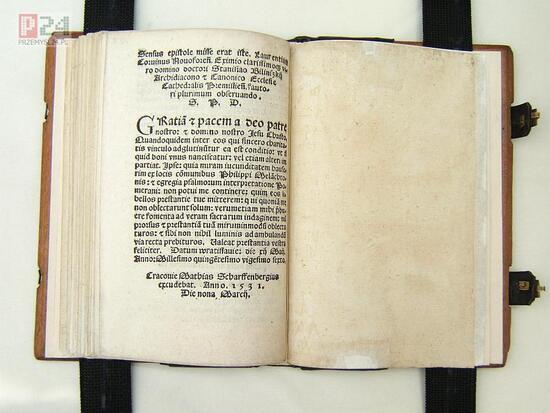 P24
PRZEMYSL24.PL
Sensus epistole misse erat iste. Laurentius
Corvinus Novoforen. Eximio clarissimoq; vi
ro domino doctori Stanislao Bilinski
Archidiacono ⁊ Canonico Ecclesie
Cathedralis Premislien. fauto
ri plurimum observando.
S. P. D.
GRatiā ⁊ pacem a deo patre
nostro: ⁊ domino nostro Jesu Christo
Quandoquidem inter eos qui sincero charita
tis vinculo adglutinātur ea est conditio: vt si
quid boni vnus nanciscatur: vel etiam alteri im
partiat. Ipse: quia miram iucunditatem hause
rim ex locis cōmunibus Philippi Melāchto
nis: ⁊ egregia psalmorum interpretatione Po
merani: non potui me continere: quin eos li
bellos prestantie tue mitterem: q
non oblectarunt solum: verumetiam mihi
ere fomenta ad veram sacrarum indaginem:
prorsus ⁊ prestantiā tuā mirummodū oblecta
turos: ⁊ sibi non nihil luminis ad ambulandū
via recta prebituros. Valeat prestantia vestra
feliciter. Datum wratislavie: die xij Maij.
Anno: Millesimo quingētesimo vigesimo sexto.
Cracovie Mathias Scharffenbergius
excudebat. Anno. 1531.
Die nona March.